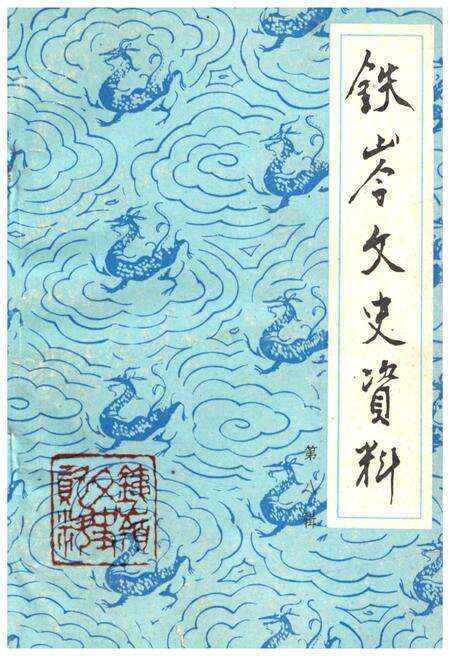 鉄岺文史資料
第八辑
鐵嶺
文史
資料